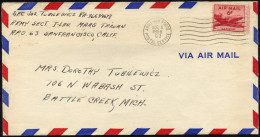 SFC Joe Lukewics RA 36570471
PFMY SECT TSAU MAAG TAIWAN
A.P.O. 63 SAN FRANCISCO, CALIF.
AIR MAIL
6¢
VIA AIR MAIL
Mrs. DOROTHY TUBILEWICZ
106 N WABASH ST.
BATTLE CREEK, MICH.